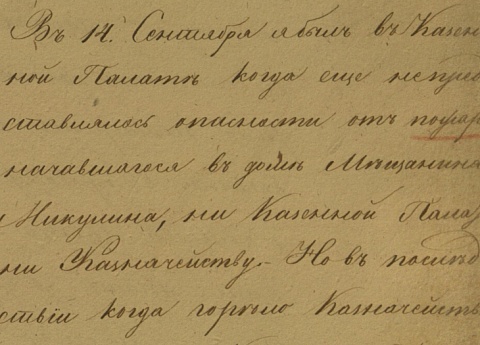 Въ 14. Сентября я былъ въ Казен
ной Палатѣ когда еще непред
ставлялось опасности отъ пожар
начавшагося въ домѣ Мѣщанина
Никулина, ни Казенной Пала
ни Казначейству. Но въ послѣд
ствіи когда горѣло Казначейств